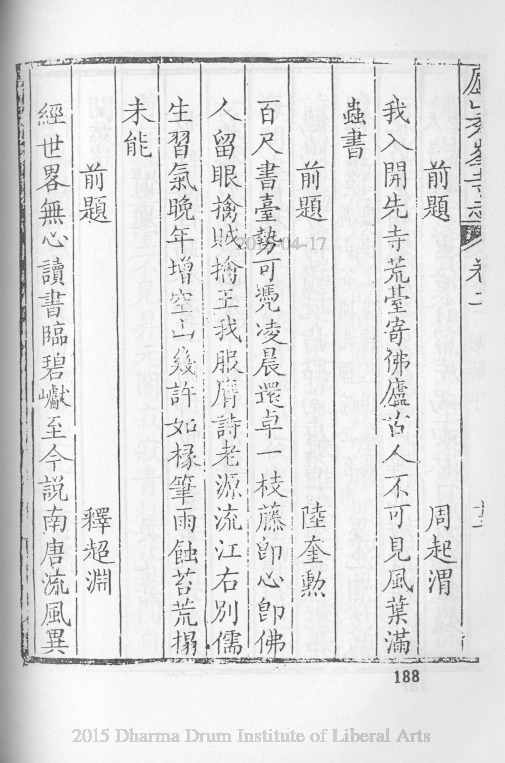 廬山秀峯寺志 卷二
前題 周起渭
我入開先寺荒臺寄佛廬古人不可見風葉滿
蟲書
前題 陸奎勲
百尺書臺勢可凴凌晨還卓一枝藤即心即佛
人留眼擒賊擒王我服膺詩老源流江右別儒
生習氣晚年增空山幾許如椽筆雨蝕苔荒搨
未能
前題 釋超淵
經世畧無心讀書臨碧巘至今說南唐流風異
188
2015 Dharma Drum Institute of Liberal Arts